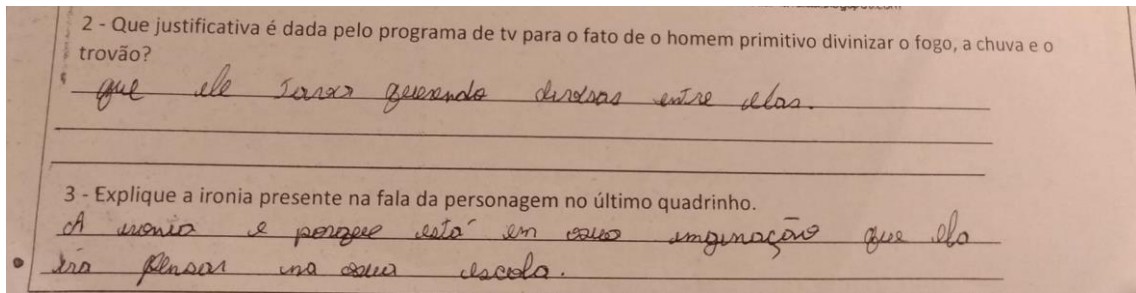 2 - Que justificativa é dada pelo programa de tv para o fato de o homem primitivo divinizar o fogo, a chuva e o
trovão?
que ele querendo entre elas.
3 - Explique a ironia presente na fala da personagem no último quadrinho.
A ironia e porque está em imginação que ela
ira pensar na sua escola.